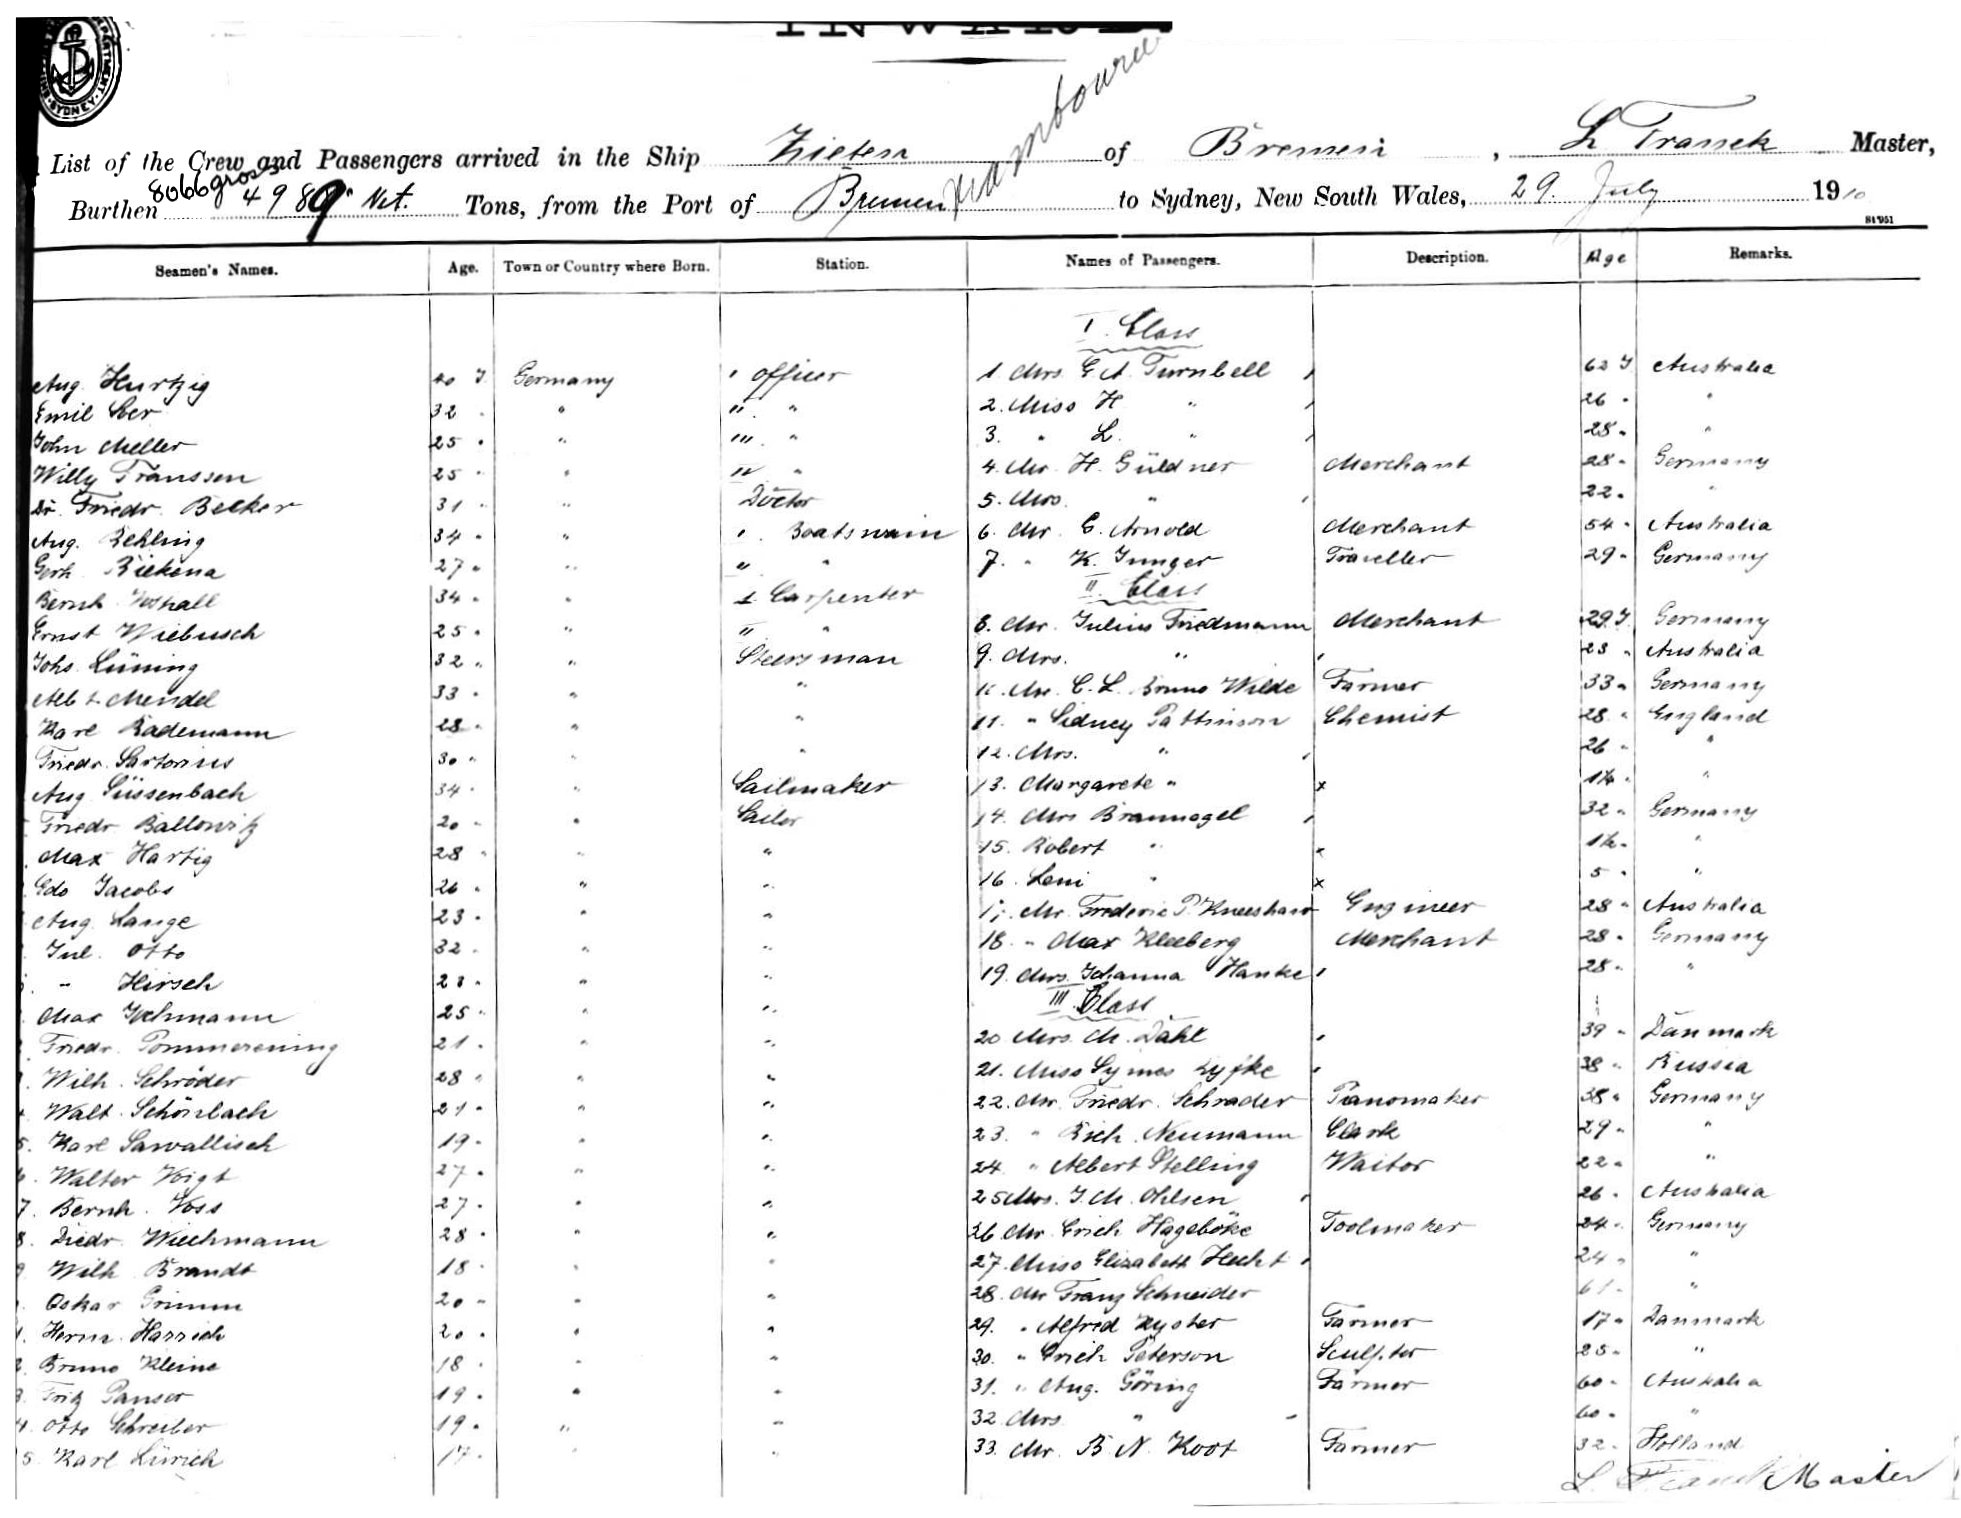 INWARD.
DEPARTMENT · SYDNEY ·
via Melbourne
List of the Crew and Passengers arrived in the Ship Zieten of Bremen, L Tranck Master,
8066 gross
Burthen 4989 Net. Tons, from the Port of Bremen to Sydney, New South Wales, 29. July 1910
81951
Seamen's Names. Age. Town or Country where Born. Station. Names of Passengers. Description. Age Remarks.
I. Class
Aug. Hurtzig 40 J. Germany I Officer 1. Mrs. E A. Turnbell 62 J. Australia
Emil Ser 32 " II. " 2. Miss H " 26 "
John Meller 25 " III. " 3. " L. " 28 "
Willy Franssen 25 " IV " 4. Mr. H. Güldner Merchant 28 " Germany
Dr. Friedr. Becker 31 " Doctor 5. Mrs. " 22 "
Aug. Rehling 34 " I. Boatswain 6. Mr. E. Arnold Merchant 54 " Australia
Gerh. Riekena 27 " II " 7. " K. Junger Traveller 29 " Germany
II. Class
Bernh. Voshall 34 " I Carpenter
Ernst Wiebusch 25 " II " 8. Mr. Julius Friedmann Merchant 29 J. Germany
Johs. Lüning 32 " Steersman 9. Mrs. " 23 " Australia
Alb t. Mendel 33 " " 10. Mr. C. L. Bruno Wilde Farmer 33 " Germany
Karl Rademann 28 " " 11. " Sidney Pattinson Chemist 28 " England
Friedr. Sartorius 30 " " 12. Mrs. " 26 "
Aug. Süssenbach 34 " Sailmaker 13. Margarete " x 1½ "
Friedr. Ballowitz 20 " Sailor 14. Mrs Braunagel 32 " Germany
Max Hartig 28 " " 15. Robert " x 1½ "
Edo Jacobs 26 " " 16. Leni " x 5 "
Aug. Lange 23 " " 17. Mr. Frederic P. Kneeshaw Engineer 28 " Australia
Jul. Otto 32 " " 18. " Max Kleeberg Merchant 28 " Germany
" Hirsch 23 " " 19. Mrs. Johanna Hanke 28 "
III. Class
Max Ihmann 25 " "
Friedr. Pommerening 21 " " 20 Mrs. M. Dahl 39 " Danmark
Wilh. Schröder 28 " " 21. Miss Symes 38 " Russia
Walt. Schönbach 21 " " 22. Mr. Friedr. Schrader Pianomaker 38 " Germany
5. Karl Sawallisch 19 " " 23. " Rich. Neumann Clerk 29 " "
6. Walter Voigt 27 " " 24. " Albert Stelling Waitor 22 " "
7. Bernh. Voss 27 " " 25 Mrs. J. M. Ohlsen 26 " Australia
8. Diedr. Wiechmann 28 " " 26 Mr. Erich Hageböke Toolmaker 24 " Germany
9 Wilh. Brandt 18 " " 27. Miss Elizabeth Hecht 24 " "
Oskar Grimm 20 " " 28. Mr Franz Schneider 61 "
1. Herm. Harrich 20 " " 29. " Alfred Kyster Farmer 17 " Danmark
2. Bruno Kleine 18 " " 30. " Erich Peterson Sculptor 25 " "
3. Fritz Panser 19 " " 31. " Aug. Göring Farmer 60 " Australia
4. Otto Schreiber 19 " " 32. Mrs " 60 " "
5. Karl Lürich 17 " " 33. Mr. B N. Koot Farmer 32 " Holland
L. Tranck Master